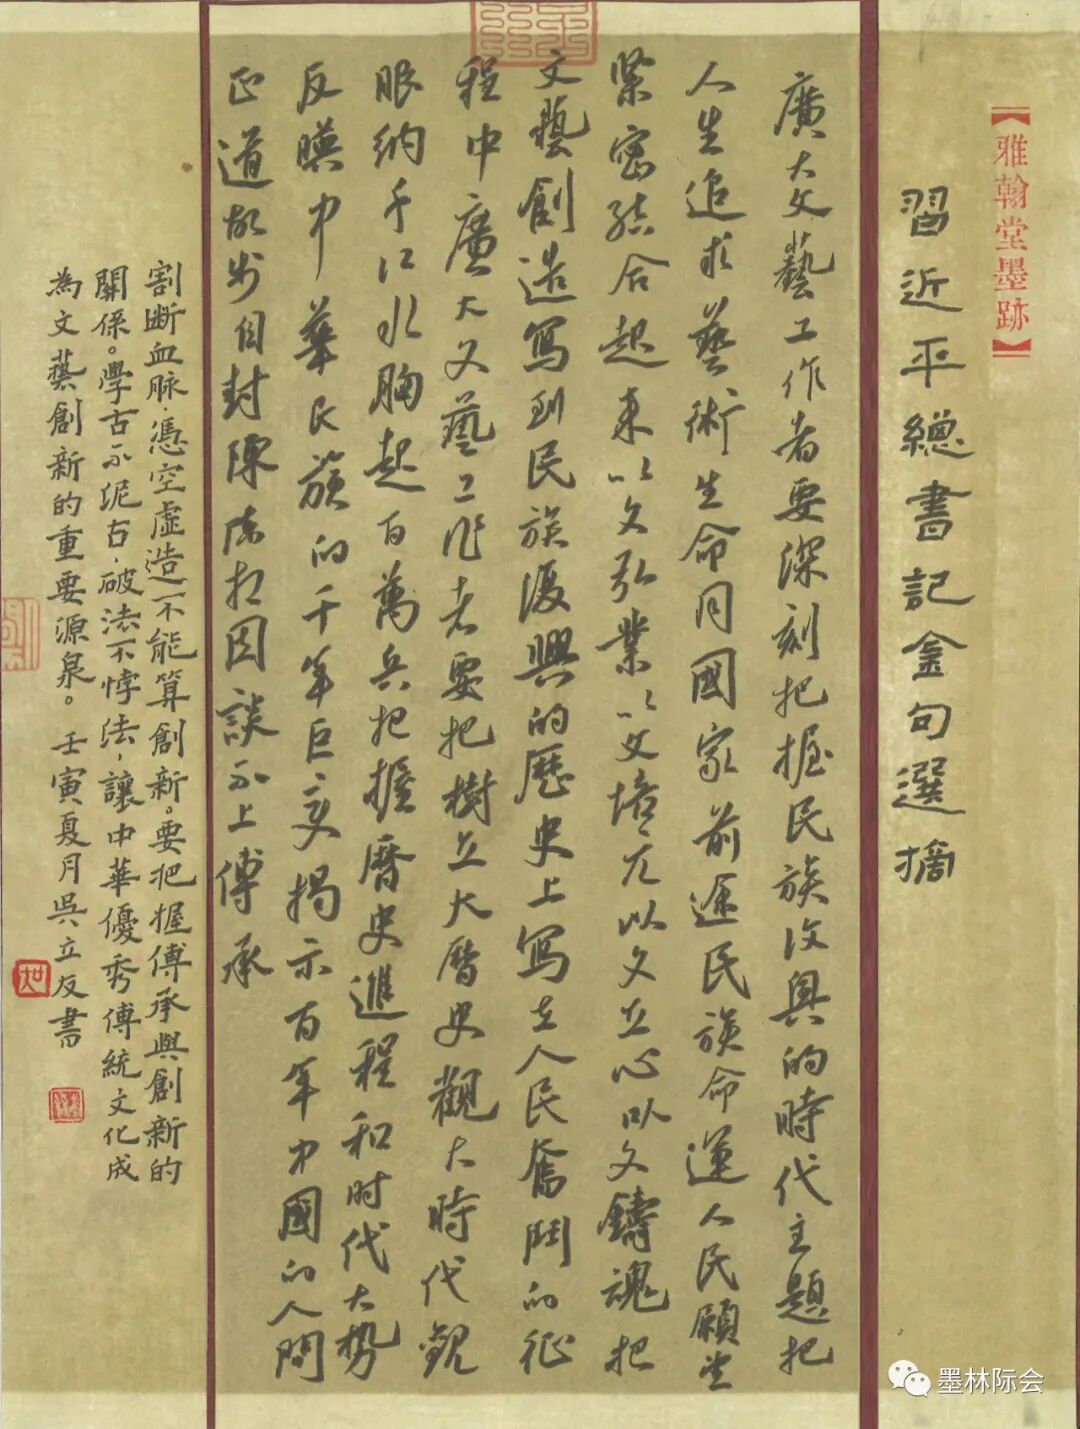 【雅翰堂墨跡】
習近平總書記金句選摘
廣大文藝工作者要深刻把握民族復興的時代主題把
人生追求藝術生命同國家前途民族命運人民願望
緊密結合起來以文弘業以文培元以文立心以文鑄魂把
文藝創造寫到民族復興的歷史上寫在人民奮鬥的征
程中廣大文藝工作者要把樹立大曆史觀大時代觀
眼納千江水胸起百萬兵把握曆史進程和时代大勢
反暎中華民族的千年巨变揭示百年中國的人間
正道故步自封陳陳相因談不上傳承
割断血脉,憑空虛造不能算創新。要把握傳承與創新的
關係。學古不泥古,破法不悖法,讓中華優秀傳統文化成
為文藝創新的重要源泉。壬寅夏月吳立友書
墨林际会